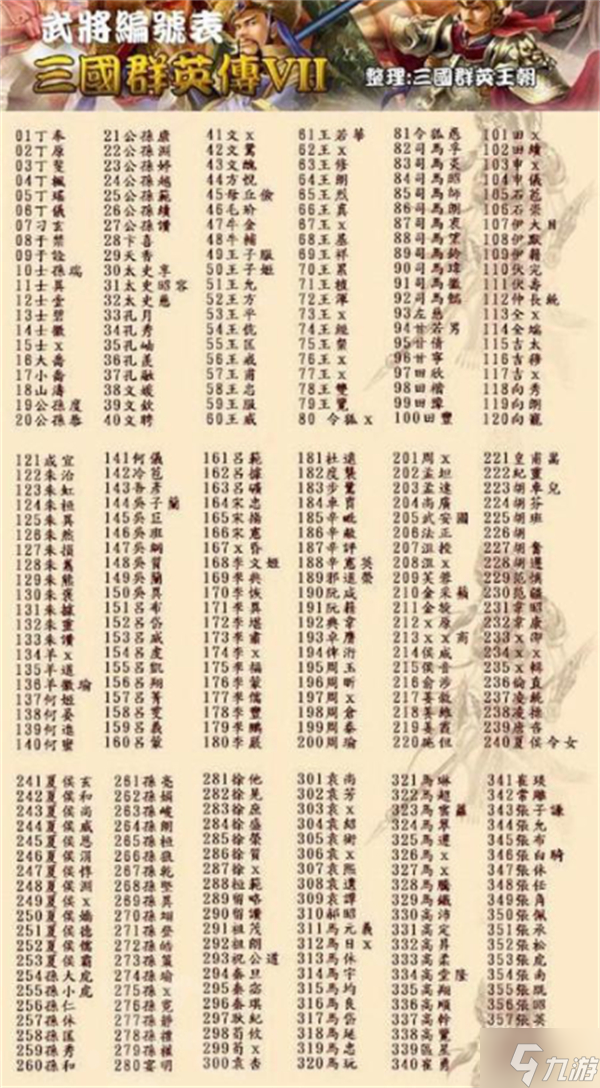 武將編號表
三國群英傳VII
整理:三國群英王朝
01丁奉
02丁原
03丁斐
04丁楓
05丁瑤
06丁儀
07刁玄
08于禁
09于詮
10士孫瑞
11士異
12士壹
13士碧
14士徽
15士x
16大喬
17小喬
18山濤
19公孫度
20公孫恭
21公孫康
22公孫淵
23公孫
24公孫越
25公孫範
26公孫續
27公孫瓚
28卞喜
29天香
30太史享
31太史昭容
32太史慈
33孔月
34孔秀
35孔岫
36孔羨
37孔融
38文媛
39文欽
40文聘
41文x
42文鴦
43文醜
44方悅
45毋丘儉
46毛玠
47牛金
48牛輔
49王子服
50王子姬
51王允
52王方
53王平
54王伉
55王匡
56王威
57王甫
58王忠
59王服
60王威
61王若華
62王x
63王修
64王朗
65王烈
66王真
67王x
68王基
69王祥
70王累
71王植
72王渾
73王x
74王經
75王粲
76王x
77王x
78王雙
79王覽
80 令狐x
81令狐愚
82司馬孚
83司馬炎
84司馬昭
85司馬師
86司馬朗
87司馬衷
88司馬望
89司馬鈴
90司馬瑋
91司馬徽
92司馬懿
93左慈
94甘若男
95甘倩
96甘寧
97田欣
98田楷
99田豫
100田豐
101田x
102田續
103申x
104申儀
105石苞
106石崇
107伊大目
108伊默
109伊籍
110伏完
111伏壽
112仲長統
113全x
114全端
115吉太
116吉穆
117吉x
118向秀
119向朗
120向寵
121成宜
122朱治
123朱虹
124朱桓
125朱異
126朱然
127朱損
128朱蕉
129朱熊
130朱褒
131朱據
132朱靈
133朱讚
134羊x
135羊道
136羊徽瑜
137何姬
138何晏
139何進
140何蜜
141何儀
142冷苞
143吾彥
144吳子蘭
145吳巨
146吳班
147吳綱
148吳質
149吳蘭
150吳異
151呂布
152呂岱
153呂威
154呂虔
155呂凱
156呂翔
157呂菁
158呂雯
159呂義
160呂蒙
161呂範
162呂據
163呂曠
164宋忠
165宋揚
166宋憲
167x昏
168李文姬
169李典
170李恢
171李異
172李堪
173李肅
174李x
175李福
176李蒙
177李儒
178李豐
179李鵬
180李嚴
181杜遠
182度龔
183步騭
184車胄
185辛毗
186辛敞
187辛評
188辛憲英
189邢道榮
190阮咸
191阮籍
192典韋
193卓膺
194俾衍
195周玉
196周昕
197周x
198周倉
199周泰
200周瑜
201周x
202孟坦
203孟達
204尚廣
205武安國
206法正
207沮授
208沮x
209芙蓉
210金采蘋
211金旋
212x原
213x x商
214侯成
215侯音
216俞涉
217姜敘
218姜維
219姜囧
220施但
221皇甫嵩
222紀靈
223胡車兒
224胡芬
225胡班
226胡
227胡奮
228胡遵
229范慎
230范疆
231韋昭
232韋康
233x御
234x x
235x輯
236倫直
237凌x
238凌操
239唐咨
240夏侯令女
241夏侯玄
242夏侯和
243夏侯尚
244夏侯威
245夏侯恩
246夏侯涓
247夏侯惇
248夏侯淵
249夏侯x
250夏侯嬌
251夏侯德
252夏侯儒
253夏侯霸
254孫大虎
255孫小虎
256孫仁
257孫休
258孫匡
259孫秀
260孫和
261孫亮
262孫娟
263孫峻
264孫朗
265孫桓
266孫狼
267孫乾
268孫堅
269孫異
270孫翊
271孫登
272孫皓
273孫策
274孫瑜
275孫x
276孫霓
277孫靜
278孫禮
279孫權
280宮明
281徐他
282徐晃
283徐庶
284徐盛
285徐榮
286徐質
287徐x
288桓範
289留略
290留讚
291祖茂
292祖朗
293祝公道
294秦旦
295秦宓
296秦琪
297耿紀
298荀攸
299荀x
300袁杏
301袁尚
302袁芳
303袁x
304袁紹
305袁術
306袁x
307袁熙
308袁遺
309袁譚
310郝昭
311馬元義
312馬日x
313馬休
314馬宇
315馬均
316馬良
317馬岱
318馬延
319馬忠
320馬玩
321馬琳
322馬超
323馬雲蘿
324馬翠
325馬遵
326馬x
327馬x
328馬騰
329馬鐵
330高沛
331高定
332高昇
333高柔
334高堂隆
335高翔
336高順
337高幹
338高覽
339區星
340崔勇
341崔琰
342常雕
343張子謙
344張允
345張布
346張白騎
347張休
348張任
349張角
350張佩
351張承
352張松
353張虎
354張南
355張既
356張昭
357張英
九游